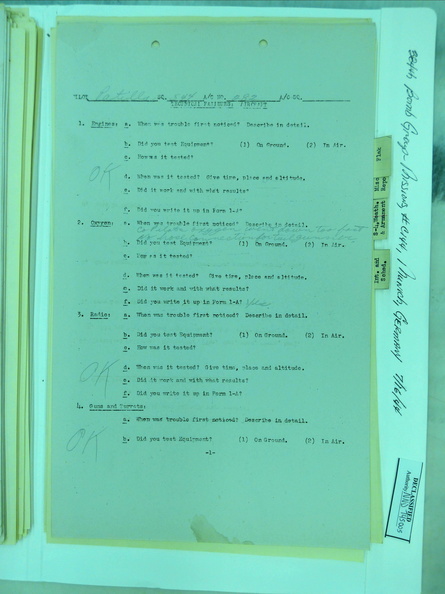 PILOT Portillo SQ. 544 A/C NO. 092 A/C SQ.
TECHNICAL FAILURES, AIRCRAFT
1. Engines: a. When was trouble first noticed? Describe in detail.
b. Did you test Equipment? (1) On Ground. (2) In Air.
c. How was it tested?
OK
d. When was it tested? Give time, place and altitude.
e. Did it work and with what results?
f. Did you write it up in Form 1-A?
2. Oxygen: a. When was trouble first noticed? Describe in detail.
too fast
b. Did you test Equipment? (1) On Ground. (2) In Air.
c. How was it tested?
d. When was it tested? Give time, place and altitude.
e. Did it work and with what results?
f. Did you write it up in Form 1-A? Yes
3. Radio: a. When was trouble first noticed? Describe in detail.
b. Did you test Equipment? (1) On Ground. (2) In Air.
c. How was it tested?
OK
d. When was it tested? Give time, place and altitude.
e. Did it work and with what results?
f. Did you write it up in Form 1-A?
4. Guns and Turrets:
a. When was trouble first noticed? Describe in detail.
OK
b. Did you test Equipment? (1) On Ground. (2) In Air.
-1-
Flak
Misc Reps
S-4, Weath. & Armament
Int. and Sched.
384th Bomb Group - Mission # Munich, Germany 7/16/44
DECLASSIFIED
Authority NND 745005